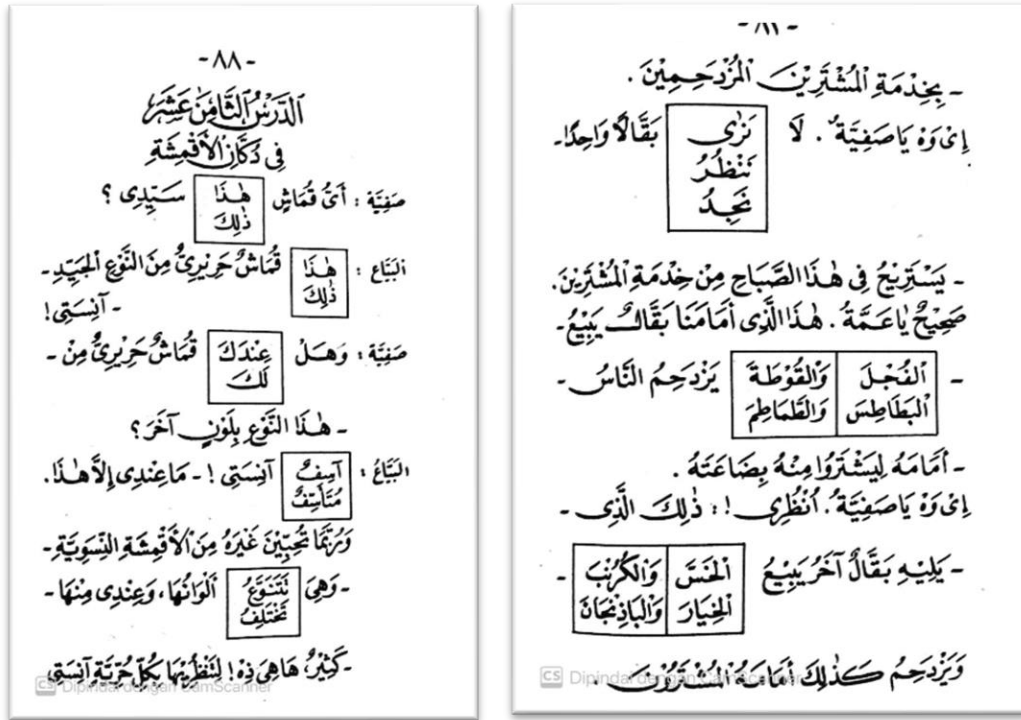 - بِخِدْمَةِ الْمُشْتَرِيْنَ الْمُزْدَحِمِيْنَ .
اِىْ وَهْ يَا صَفِيَّةُ . لَا نَرٰى بَقَّالًا وَاحِدًا -
نَنْظُرُ
نَجِدُ
- يَسْتَرِيْحُ فِى هٰذَا الصَّبَاحِ مِنْ خِدْمَةِ الْمُشْتَرِيْنَ.
صَحِيْحٌ يَا عَمَّةُ . هٰذَا الَّذِى أَمَامَنَا بَقَّالٌ يَبِيْعُ -
- اَلْفُجْلَ وَالْقُوْطَةَ يَزْدَحِمُ النَّاسُ -
اَلْبَطَاطِسَ وَالطَّمَاطِمَ
- أَمَامَهُ لِيَشْتَرُوا مِنْهُ بِضَاعَتَهُ .
اِىْ وَهْ يَا صَفِيَّةُ . اُنْظُرِى ! : ذٰلِكَ الَّذِى -
- يَلِيْهِ بَقَّالٌ آخَرُ يَبِيْعُ اَلْخَسَّ وَالْكُرُنْبَ -
اَلْخِيَارَ وَالْبَاذِنْجَانَ
وَيَزْدَحِمُ كَذٰلِكَ أَمَامَهُ الْمُشْتَرُوْنَ .
CS Dipindai dengan CamScanner
- ٨٨ -
اَلدَّرْسُ الثَّامِنَ عَشَرَ
فِى دُكَّانِ الْأَقْمِشَةِ
صَفِيَّة : أَىُّ قُمَاشٍ هٰذَا سَيِّدِى ؟
ذٰلِكَ
اَلْبَيَّاع : هٰذَا قُمَاشٌ حَرِيْرِىٌّ مِنَ النَّوْعِ الْجَيِّدِ -
ذٰلِكَ
- آنِسَتِى !
صَفِيَّة : وَهَلْ عِنْدَكَ قُمَاشٌ حَرِيْرِىٌّ مِنْ -
لَكَ
- هٰذَا النَّوْعِ بِلَوْنٍ آخَرَ ؟
اَلْبَيَّاعُ : آسِفٌ آنِسَتِى ! - مَا عِنْدِى إِلَّا هٰذَا.
مُتَأَسِّفٌ
وَرُبَّمَا تُحِبِّيْنَ غَيْرَهُ مِنَ الْأَقْمِشَةِ النِّسَوِيَّةِ -
- وَهِىَ تَتَنَوَّعُ اَلْوَانُهَا ، وَعِنْدِى مِنْهَا -
تَخْتَلِفُ
- كَثِيْرٌ، هَا هِىَ ذِهْ ! لِتَنْظُرِيْهَا بِكُلِّ حُرِّيَّةٍ آنِسَتِى
CS Dipindai dengan CamScanner